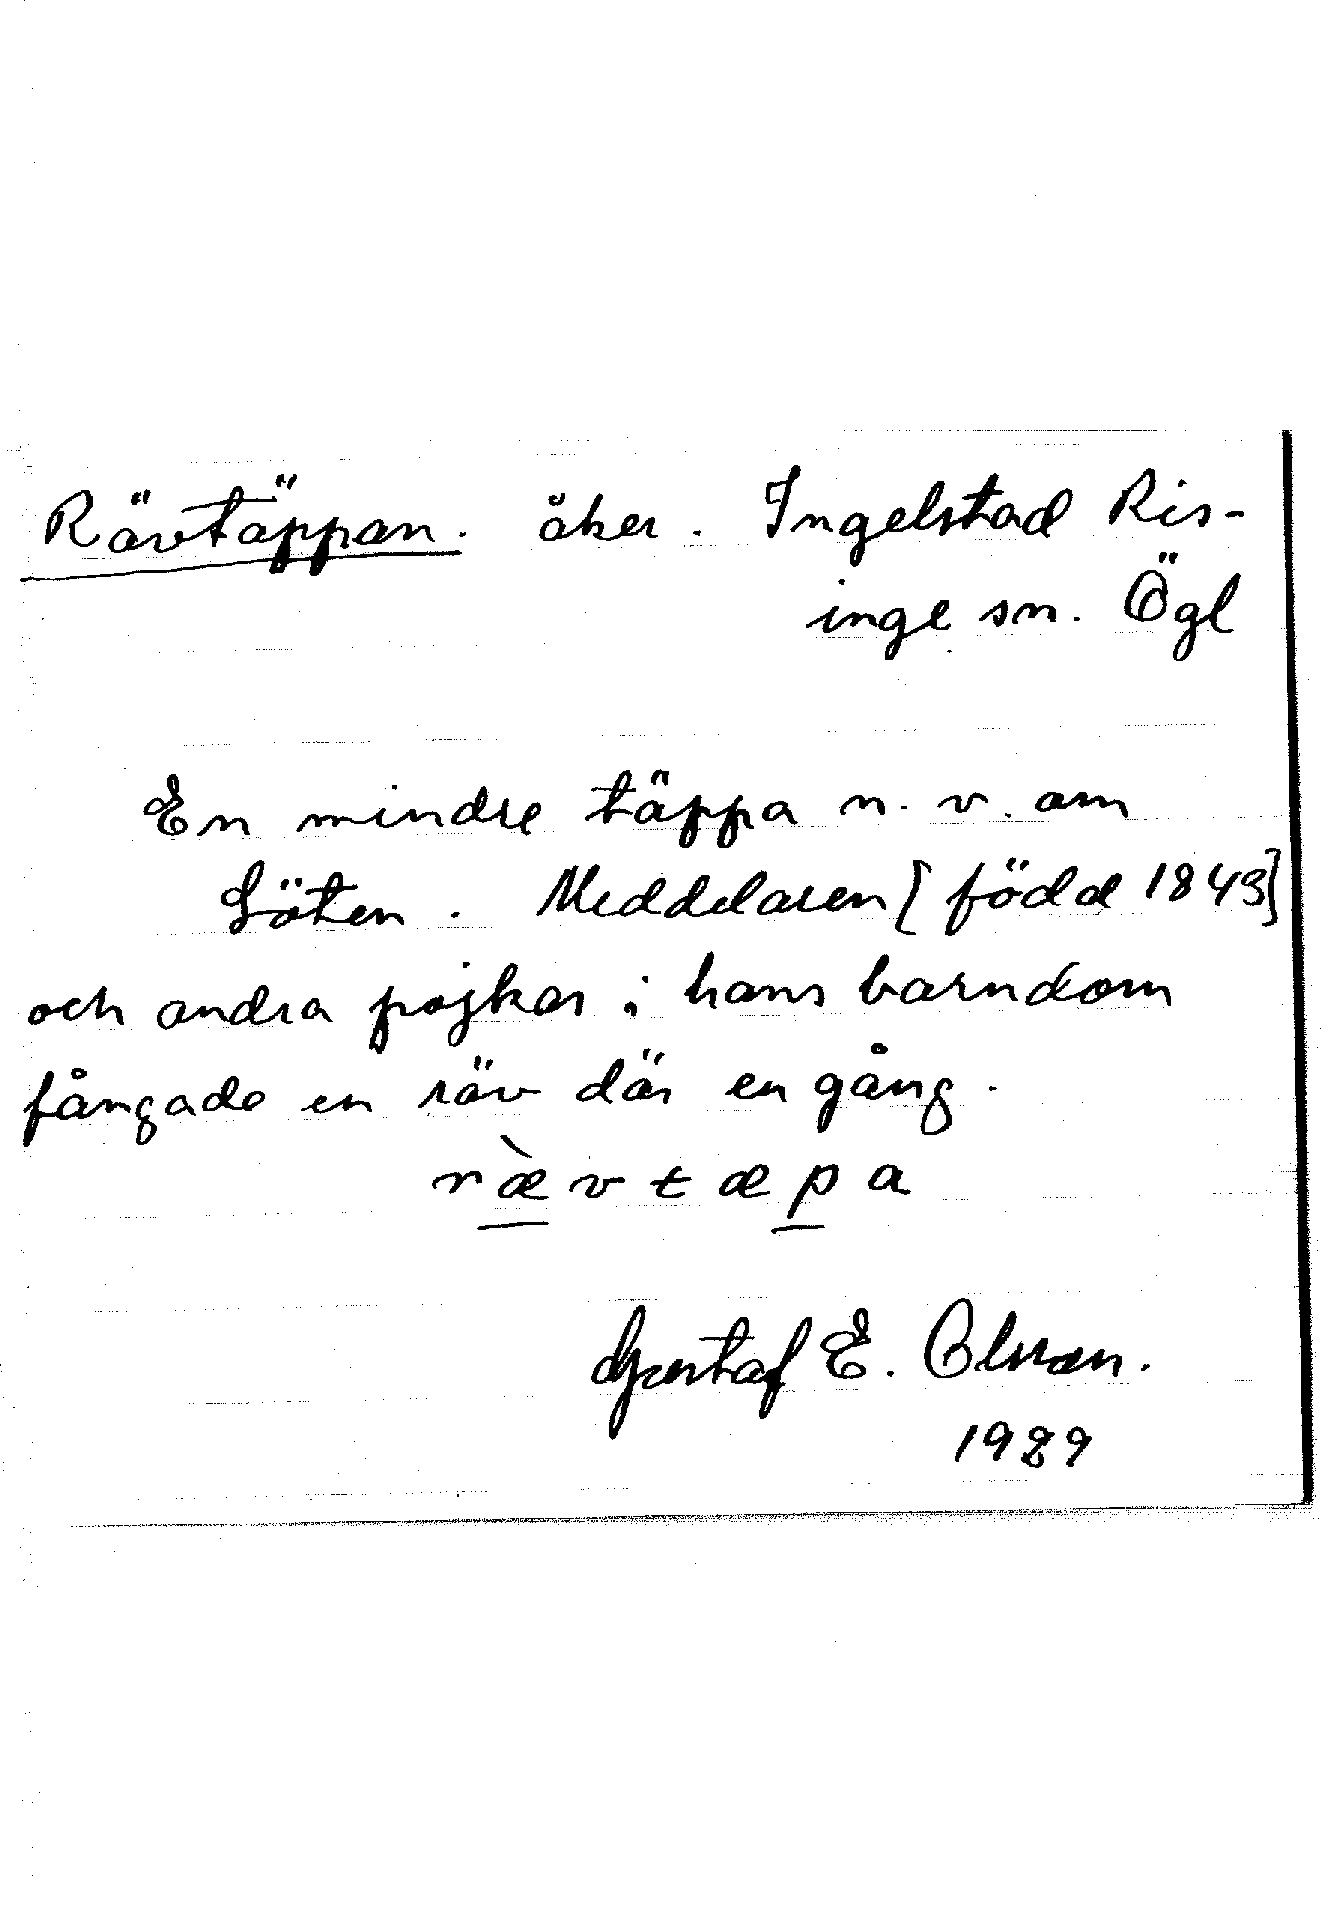 Rävtäppan. åker. Ingelstad Ris-
inge sn. Ögl
En mindre täppa n. v. om
Löten. Meddelaren [född 1843]
och andra pojkar i hans barndom
fångade en räv där en gång.
ræ̀vtæpa
Gustaf E. Olsson.
1929